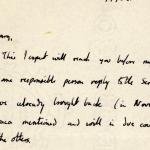 This I expect will reach you before
responsible person reply 5th
already brought back (in Nov
mentioned and will in due
the others.